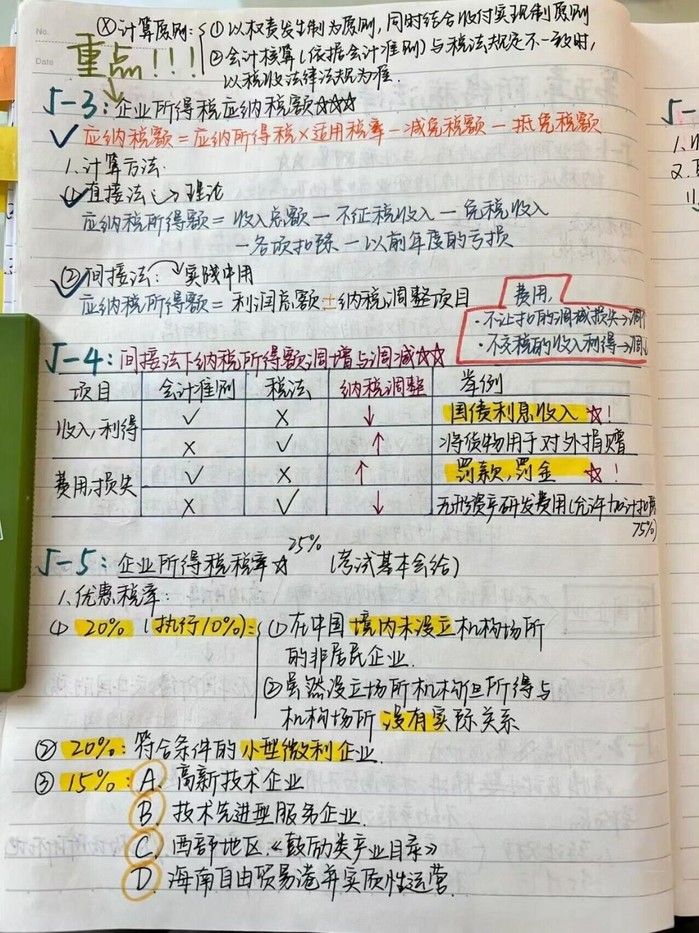 No.
Date
(X) 计算原则: ① 以权责发生制为原则, 同时结合收付实现制原则
② 会计核算(依据会计准则)与税法规定不一致时,
以税收法律法规为准.
重点!!!
5-3: 企业所得税应纳税额☆☆☆
✓ 应纳税额=应纳所得税×适用税率-减免税额-抵免税额
1.计算方法:
①直接法 → 理论
应纳税所得额=收入总额-不征税收入-免税收入
-各项扣除-以前年度的亏损
②间接法: 实践中用
应纳税所得额=利润总额±纳税调整项目
费用,
·不让扣的调减损失→调
·不交税的收入利得→调
5-4: 间接法下纳税所得额调增与调减☆☆
项目 会计准则 税法 纳税调整 举例
收入,利得 ✓ × ↓ 国债利息收入 ☆!
× ✓ ↑ 将货物用于对外捐赠
费用损失 ✓ × ↑ 罚款,罚金 ☆!
× ✓ ↓ 无形资产研发费用(允许加计扣除
75%)
5-5: 企业所得税税率☆ 25% (考试基本会给)
1.优惠税率:
① 20% (执行10%): ①在中国境内未设立机构场所
的非居民企业.
②虽然设立场所机构但所得与
机构场所没有实际关系
② 20%: 符合条件的小型微利企业.
③ 15%: A. 高新技术企业
B. 技术先进型服务企业.
C. 西部地区.《鼓励类产业目录》
D. 海南自由贸易港并实质性运营.
5-
1.
2.